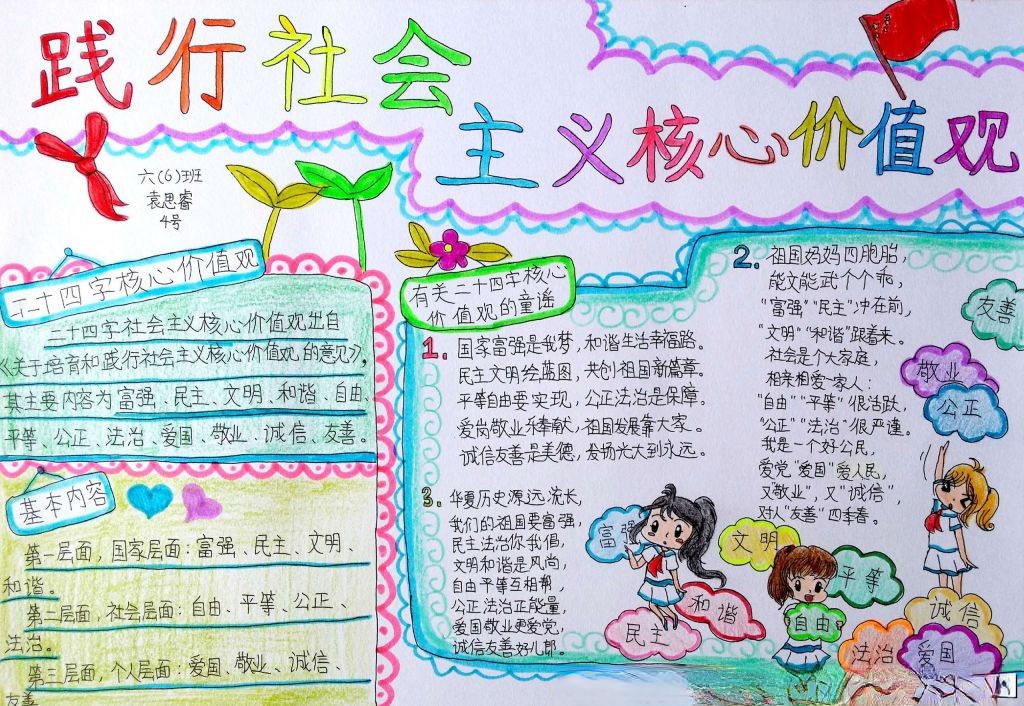 践行社会
主义核心价值观
六(6)班
袁思睿
4号
二十四字核心价值观
二十四字社会主义核心价值观出自
《关于培育和践行社会主义核心价值观的意见》。
其主要内容为富强、民主、文明、和谐、自由、
平等、公正、法治、爱国、敬业、诚信、友善。
基本内容
第一层面,国家层面:富强、民主、文明、
和谐。
第二层面,社会层面:自由、平等、公正、
法治。
第三层面,个人层面:爱国、敬业、诚信、
友善
有关二十四字核心
价值观的童谣
1. 国家富强是我梦,和谐生活幸福路。
民主文明绘蓝图,共创祖国新篇章。
平等自由要实现,公正法治是保障。
爱岗敬业乐奉献,祖国发展靠大家。
诚信友善是美德,发扬光大到永远。
2. 祖国妈妈四胞胎,
能文能武个个乖,
"富强""民主"冲在前,
"文明""和谐"跟着来。
社会是个大家庭,
相亲相爱一家人:
"自由""平等"很活跃,
"公正""法治"很严谨。
我是一个好公民,
爱党"爱国"爱人民,
又"敬业",又"诚信",
对人"友善"四季春。
3. 华夏历史源远流长,
我们的祖国要富强,
民主法治你我倡,
文明和谐是风尚,
自由平等互相帮,
公正法治正能量,
爱国敬业更爱党,
诚信友善好儿郎。
友善
敬业
公正
富强
文明
平等
和谐
民主
自由
诚信
法治
爱国